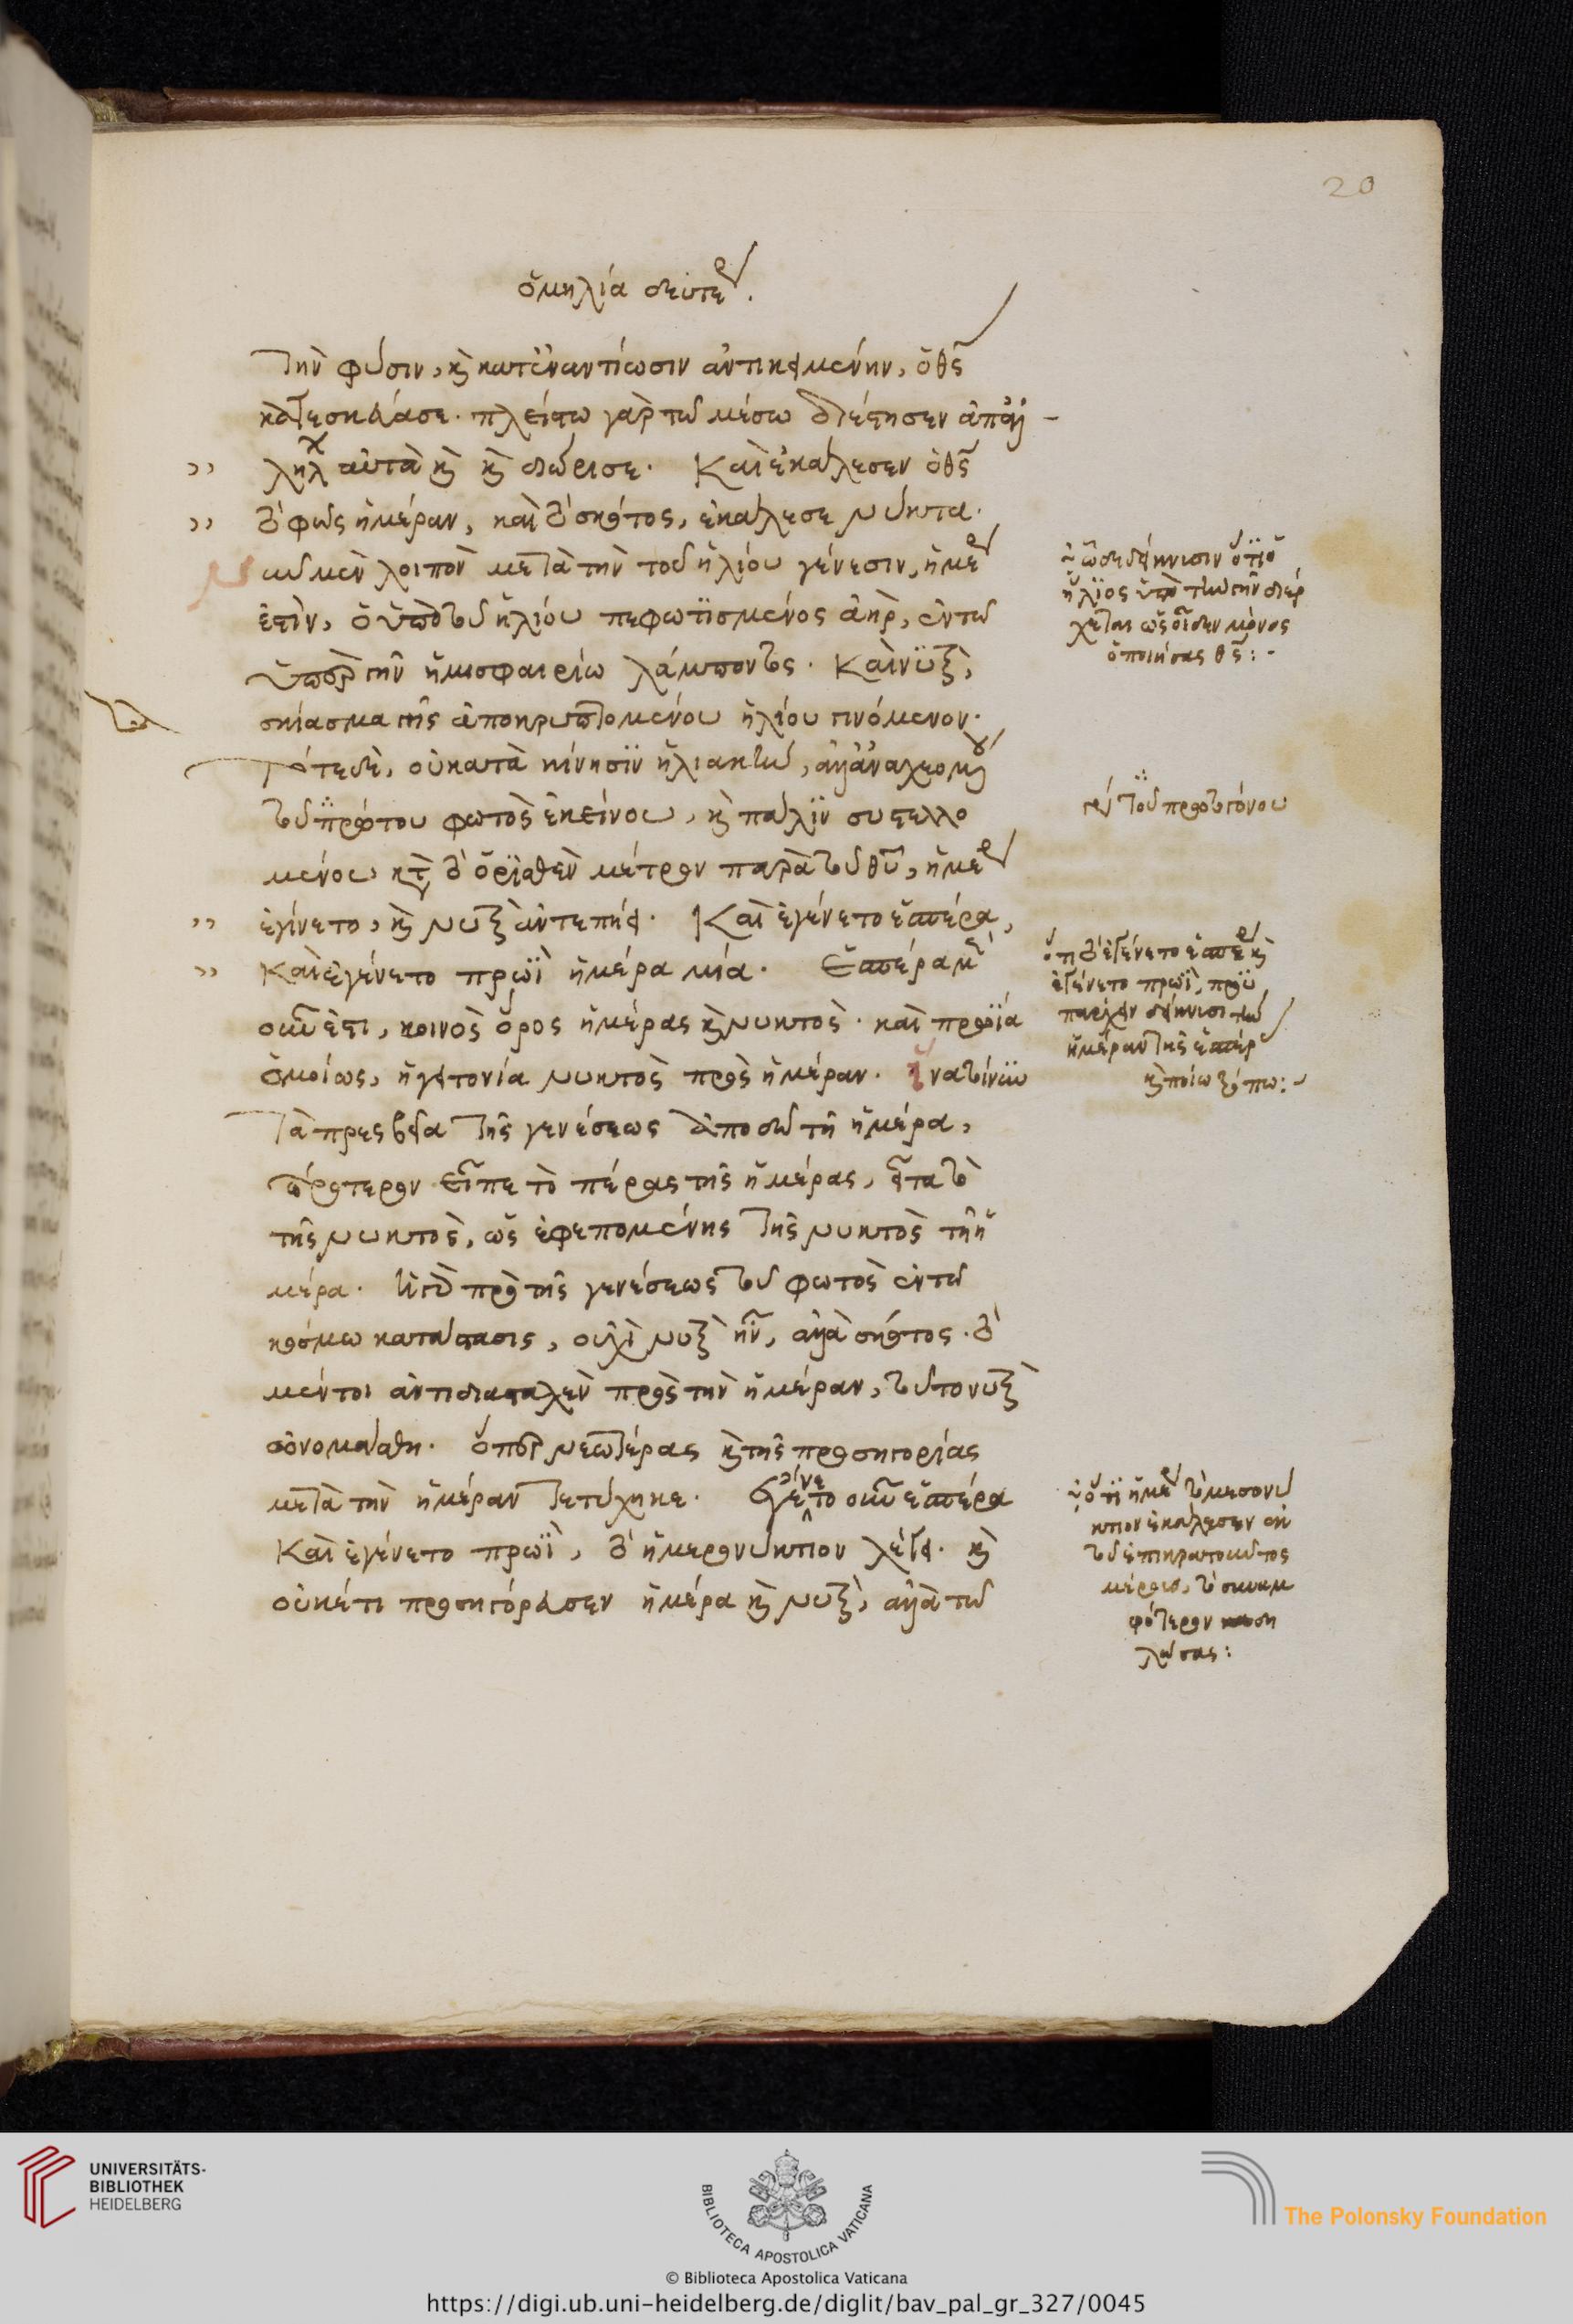 20
ὁμηλία δευτερ
τὴν φύσιν, κατεναντίωσιν ἀντικειμένην, ὁ θς
κατεσκεύασε. πλείστω γὰρ τῶ μέσω διέστησεν ἀπαλ-
λήλ αὐτὰ καὶ διώρισε. Καὶ ἐκάλεσεν ὁ θς
τὸ φῶς ἡμέραν, καὶ τὸ σκότος, ἐκάλεσε νύκτα.
Νῦν μὲν λοιπὸν μετὰ τὴν τοῦ ἡλίου γένεσιν, ἡμέρ
ἐστὶν, ὁ ὑπὸ τοῦ ἡλίου πεφωτισμένος ἀὴρ, ἐν τῶ
ὑπὲρ γῆν ἡμισφαιρίω λάμποντος. Καὶ νὺξ,
σκίασμα γῆς ἀποκρυπτομένου ἡλίου γινόμενον.
τότε δὲ, οὐ κατὰ κίνησιν ἡλιακὴν, ἀλλ' ἀναχεομένου
τοῦ πρώτου φωτὸς ἐκείνου, καὶ πάλιν συστελλο
μένου κατὰ τὸ ὁρισθὲν μέτρον παρὰ τοῦ θῦ, ἡμέρ
ἐγίνετο, καὶ νὺξ ἀντεπήει. Καὶ ἐγένετο ἑσπέρα,
καὶ ἐγένετο πρωῒ ἡμέρα μία. Ἑσπέρα μὲν
οὖν ἐστι, κοινὸς ὅρος ἡμέρας καὶ νυκτὸς. καὶ πρωΐα
ὁμοίως, ἡ γειτονία νυκτὸς πρὸς ἡμέραν. ἵνα τοίνυν
τὰ πρεσβεῖα τῆς γενέσεως ἀποδῶ τῆ ἡμέρα,
πρότερον εἶπε τὸ πέρας τῆς ἡμέρας, εἶτα τὸ
τῆς νυκτὸς, ὡς ἐφεπομένης τῆς νυκτὸς τῆ ἡ
μέρα. ἡ γὰρ πρὸ τῆς γενέσεως τοῦ φωτὸς ἐν τῶ
κόσμω κατάστασις, οὐχὶ νὺξ ἦν, ἀλλὰ σκότος. τὸ
μέντοι ἀντιδιασταλὲν πρὸς τὴν ἡμέραν, τοῦτο νὺξ
ὠνομάσθη. ὅπερ νεωτέρας καὶ τῆς προσηγορίας
μετὰ τὴν ἡμέραν τετύχηκε. Ἐγένετο οὖν ἑσπέρα
καὶ ἐγένετο πρωῒ, τὸ ἡμερονύκτιον λέγει. καὶ
οὐκέτι προσηγόρευσεν ἡμέρα καὶ νὺξ, ἀλλὰ τῶ
ὧδε δείκνυσιν ὅτι ὁ
ἥλιος ὑπὸ τὴν γῆν διέρ
χεται ὡς οἶδεν μόνος
ὁ ποιήσας θς:-
τοῦ πρωτογόνου
ὅτι τὸ ἐγένετο ἑσπέρ καὶ
ἐγένετο πρωῒ, προϋ
πάρχειν δείκνυσι τὴν
ἡμέραν τῆς ἑσπέρ
καὶ ποίω τρόπω:-
ὅτι ἡμέρ τὸ μεσονύ
κτιον ἐκάλεσεν ἐκ
τοῦ ἐπικρατοῦντος
μέρους, τὸ συναμ
φότερον δη
λώσας:
UNIVERSITÄTS-
BIBLIOTHEK
HEIDELBERG
BIBLIOTECA APOSTOLICA VATICANA
The Polonsky Foundation
© Biblioteca Apostolica Vaticana
https://digi.ub.uni-heidelberg.de/diglit/bav_pal_gr_327/0045